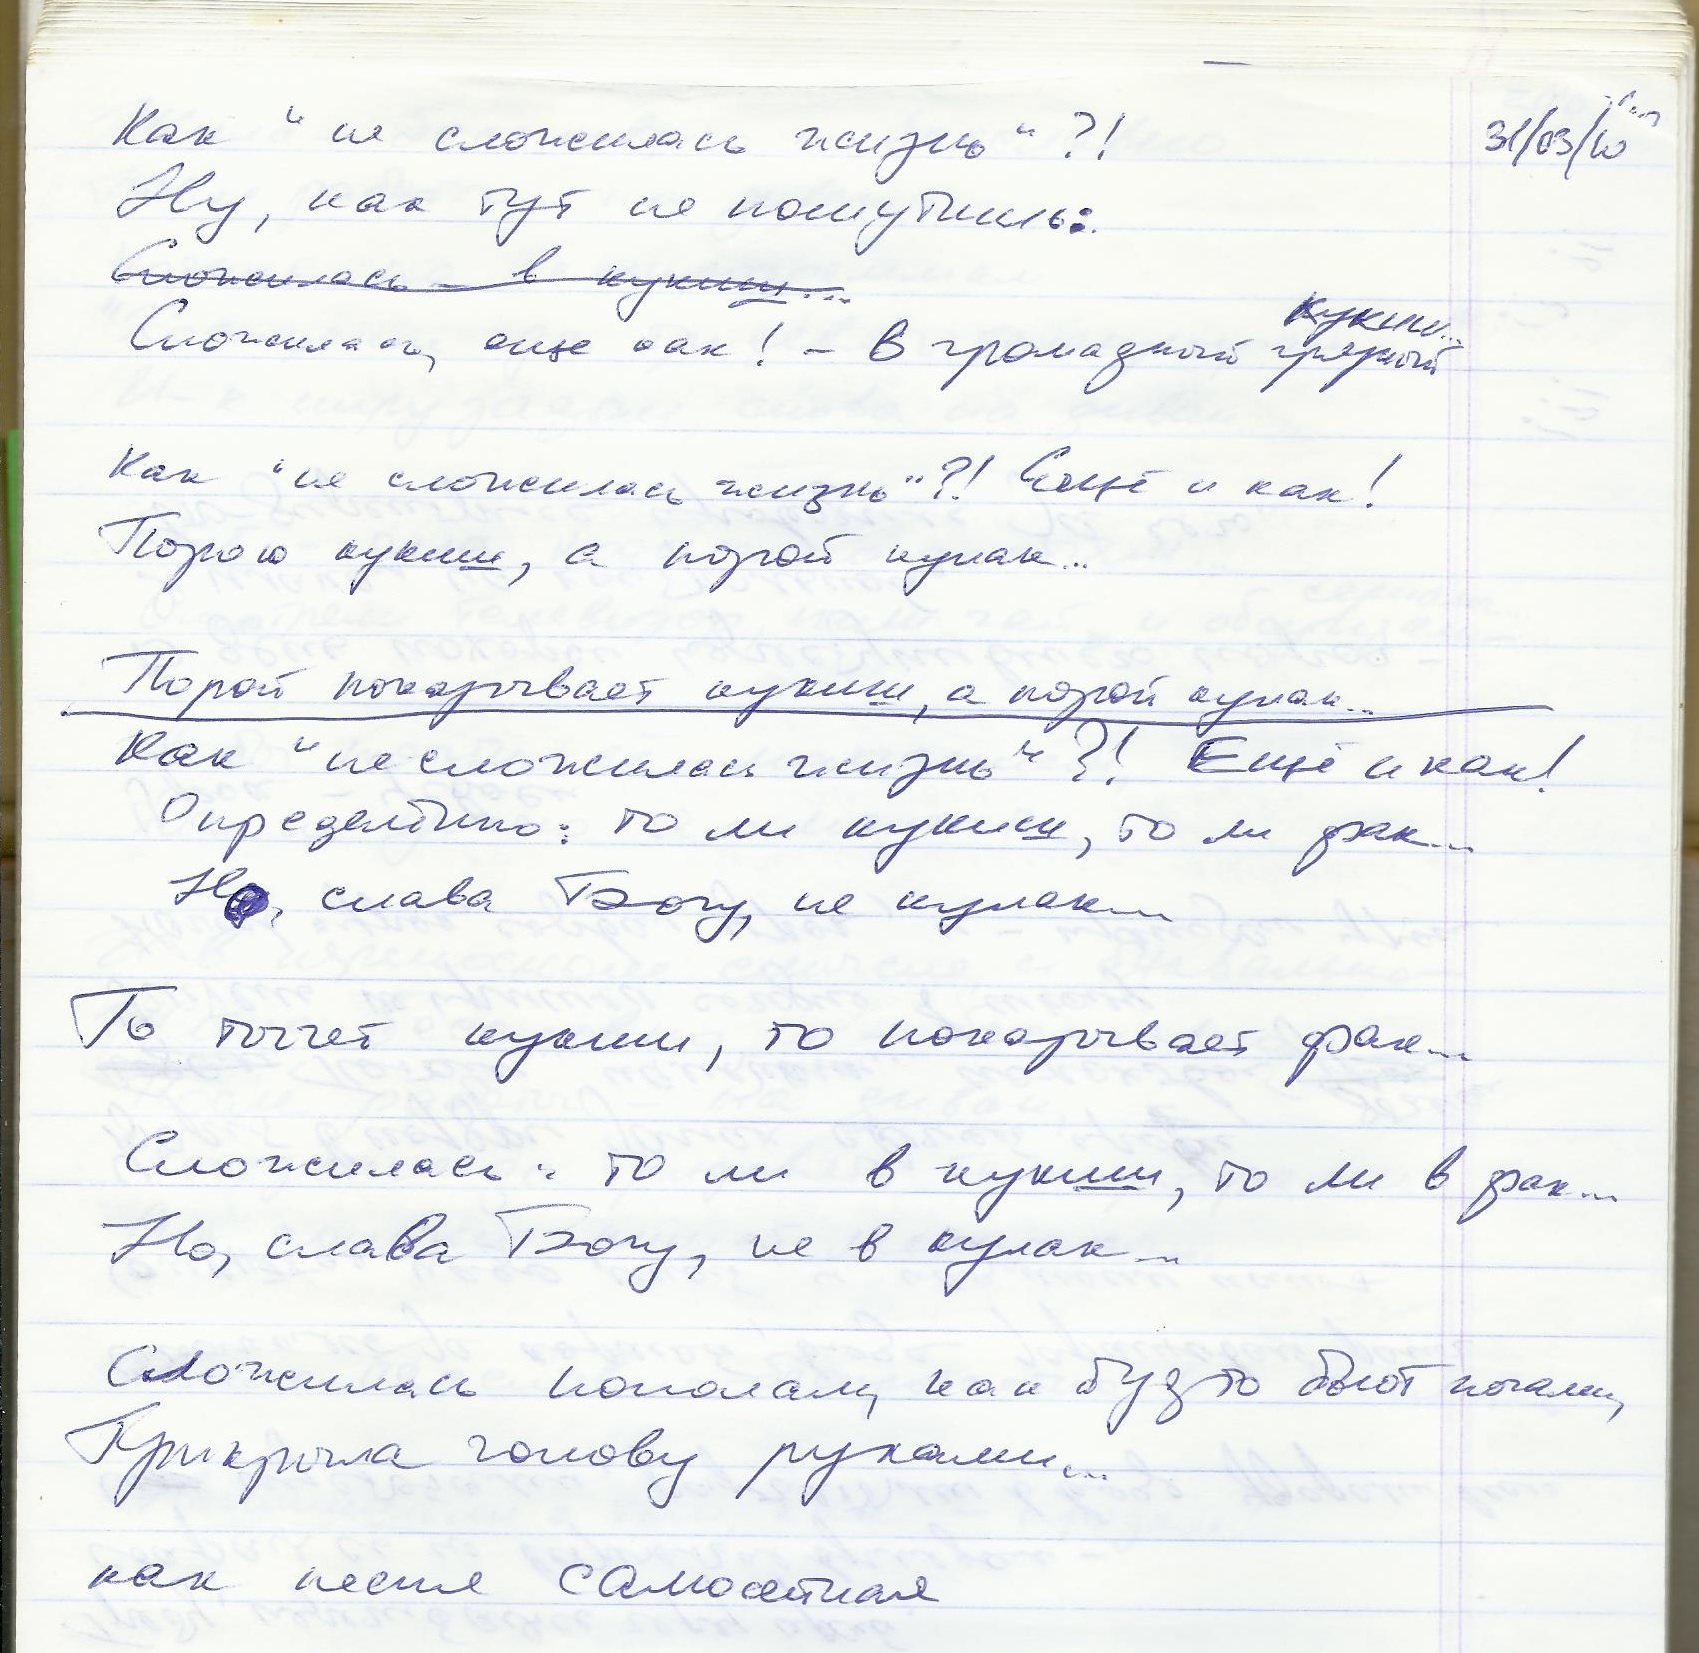 31/03/10
Как "не сложилась жизнь"?!
Ну, как тут не пошутишь:
Сложилась – в кукиш...
Сложилась, еще как! – в громадный грязный кукиш...
Как "не сложилась жизнь"?! Ещё и как!
Порою кукиш, а порой кулак...
Порой показывает кукиш, а порой кулак...
Как "не сложилась жизнь"?! Ещё и как!
Определённо: то ли кукиш, то ли фак...
Но, слава Богу, не кулак...
То тычет кукиш, то показывает фак...
Сложилась: то ли в кукиш, то ли в фак...
Но, слава Богу, не в кулак...
Сложилась пополам, как будто бьют ногами,
Прикрыла голову руками...
как песня самолётная